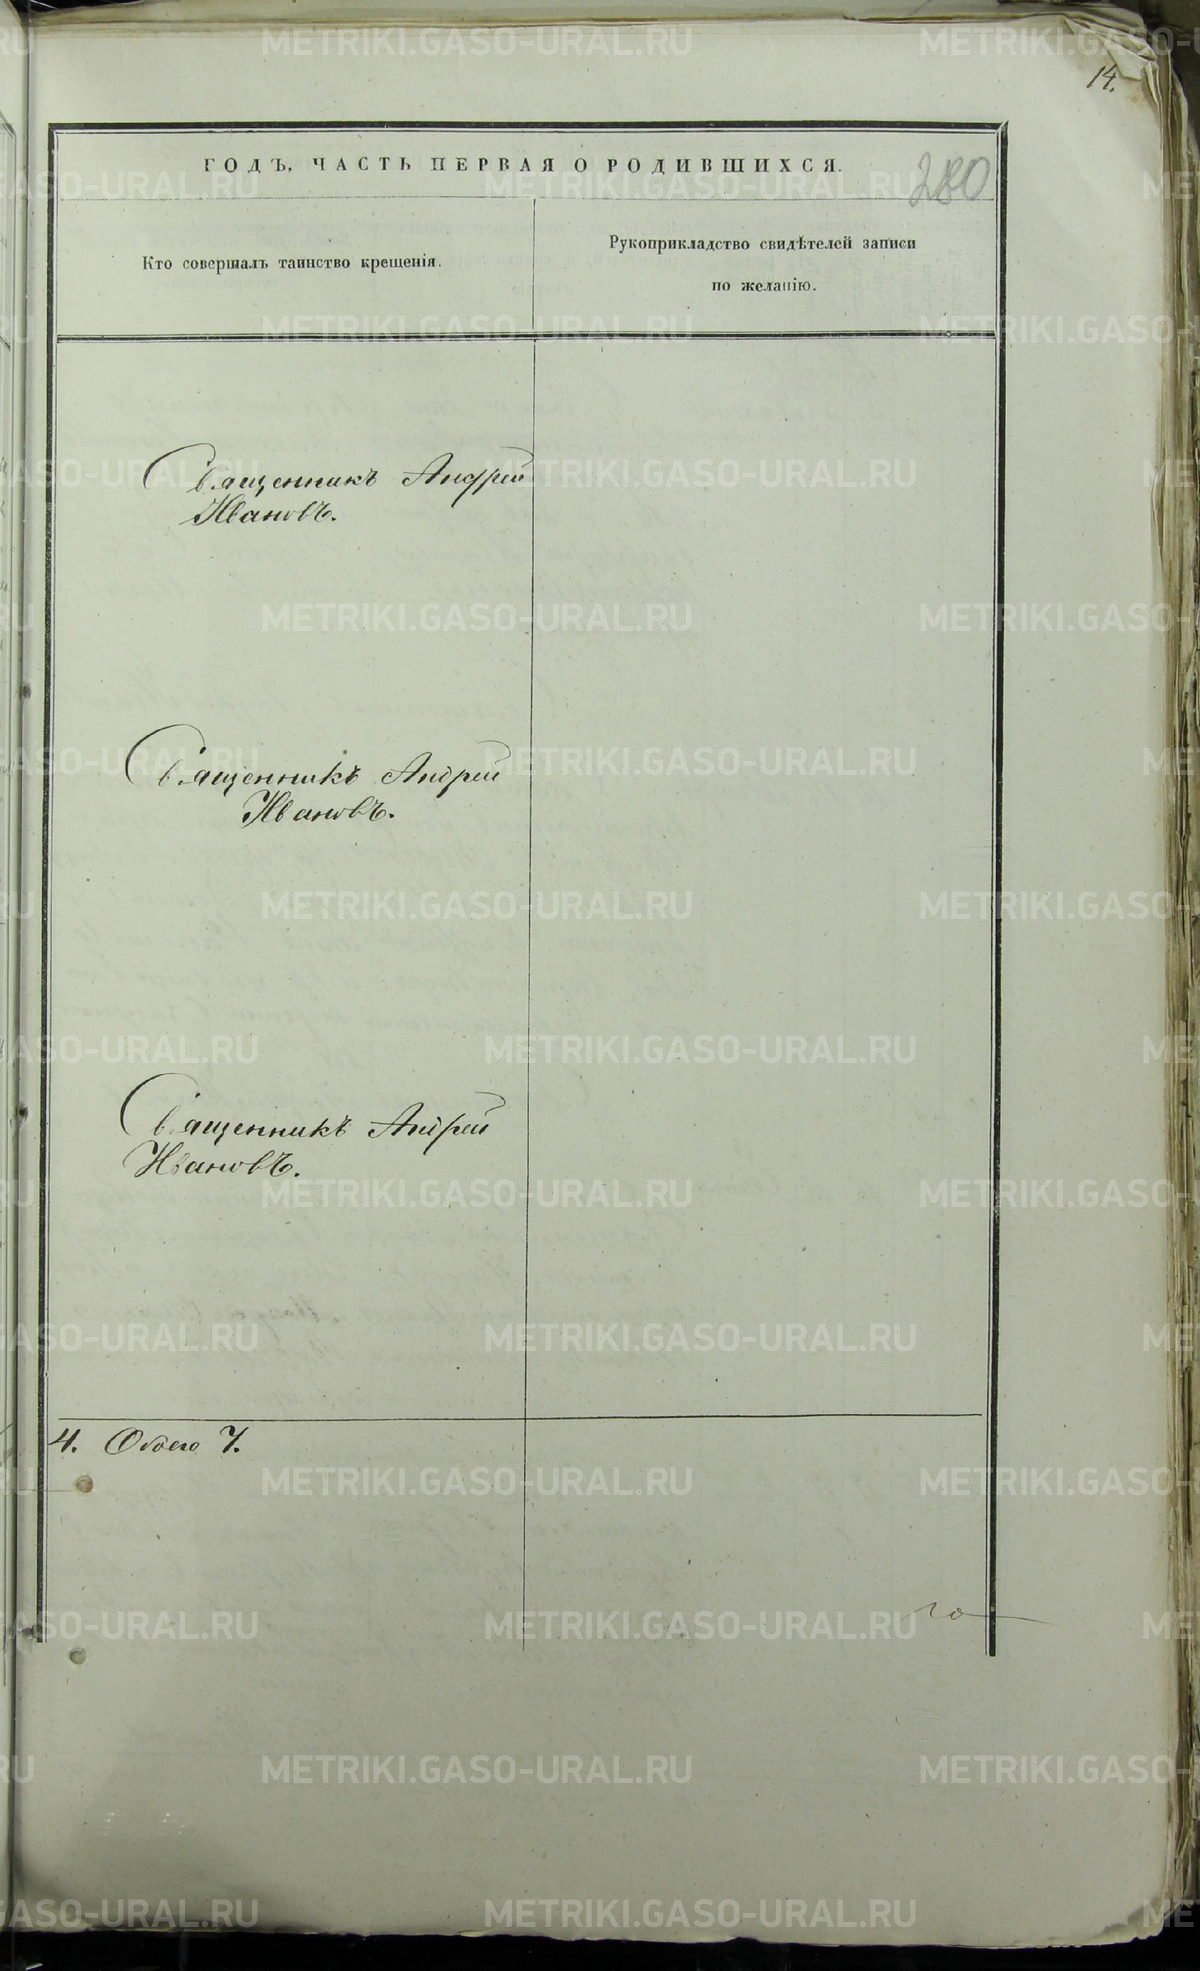 14.
ГОДЪ, ЧАСТЬ ПЕРВАЯ О РОДИВШИХСЯ.
280
Кто совершалъ таинство крещенія.
Рукоприкладство свидѣтелей записи
по желанію.
Священникъ Андрей
Ивановъ.
Священникъ Андрей
Ивановъ.
Священникъ Андрей
Ивановъ.
4. Обоего 7.
го
METRIKI.GASO-URAL.RU